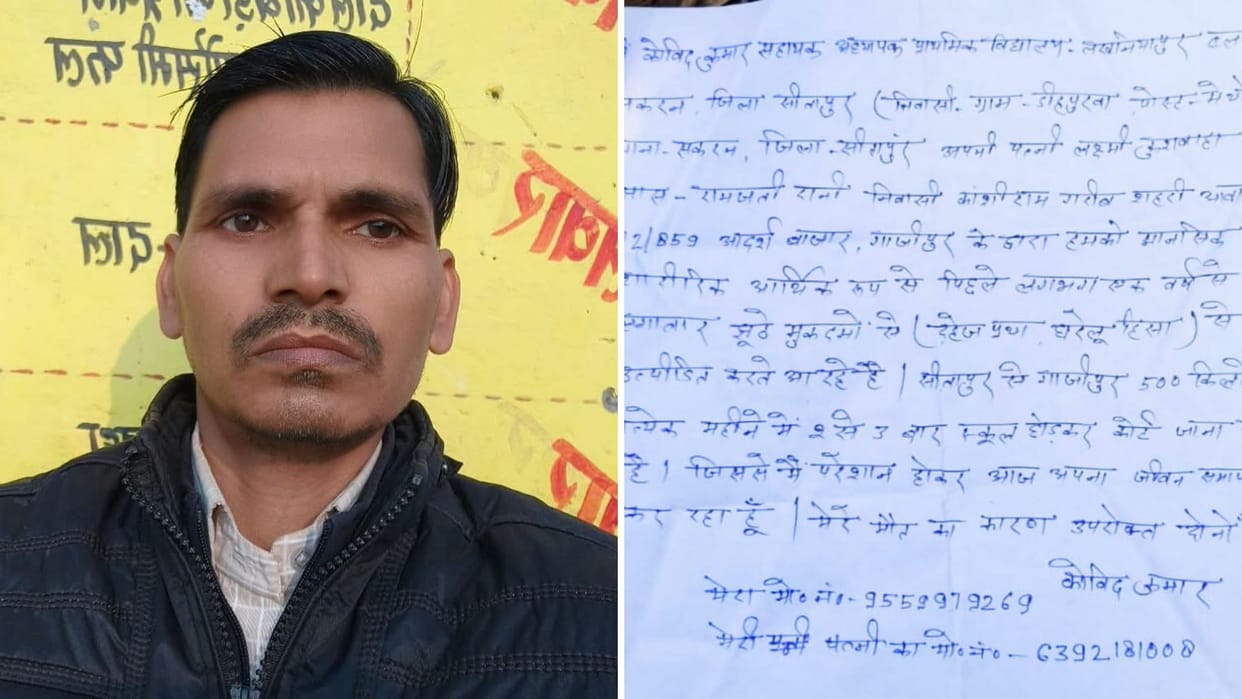 मौसमी फल
दाल
कोविद कुमार सहायक अध्यापक प्राथमिक विद्यालय-
करन, जिला सीतापुर (निवासी- ग्राम- डीहपुरवा पोस्ट-
सकरन, जिला-सीतापुर अपनी पत्नी लक्ष्मी कुशवाहा
सास - रामजती रानी निवासी कांशीराम गरीब शहरी आवा
2/859 आदर्श बाजार, गाजीपुर के द्वारा हमको मानसिक
शारीरिक आर्थिक रूप से पिछले लगभग एक वर्ष से
लगातार झूठे मुकदमों से (दहेज प्रथा, घरेलू हिंसा) से
उत्पीडित करते आ रहे है | सीतापुर से गाजीपुर 500 किलो
त्येक महीने में 2 से 3 बार स्कूल छोड़कर कोर्ट जाना
है | जिससे मै परेशान होकर आज अपना जीवन समाप
कर रहा हूँ | मेरे मौत का कारण उपरोक्त दोनों
कोविद कुमार
मेरा मो॰ नं॰- 9559979269
मेरी पत्नी का मो॰ नं॰ - 6392181008